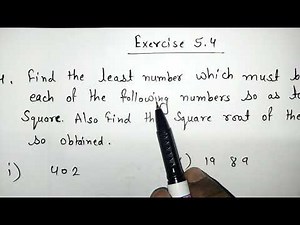 Exercise 5.4
4. Find the least number which must b
each of the following numbers so as to
Square. Also find the Square root of the
so obtained.
i) 402 ) 1989